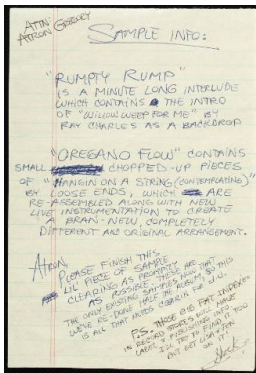 ATTN
ATRON GREGORY
SAMPLE INFO:
"RUMPTY RUMP"
IS A MINUTE LONG INTERLUDE
WHICH CONTAINS THE INTRO
OF "WILLOW WEEP FOR ME" BY
RAY CHARLES AS A BACKDROP
"OREGANO FLOW" CONTAINS
SMALL CHOPPED-UP PIECES
OF "HANGIN ON A STRING (CONTEMPLATING)"
BY LOOSE ENDS, WHICH ARE
RE-ASSEMBLED ALONG WITH NEW
LIVE INSTRUMENTATION TO CREATE
BRAN-NEW COMPLETELY
DIFFERENT AND ORIGINAL ARRANGEMENT.
ATRON
PLEASE FINISH THIS
LIL' PIECE OF SAMPLE
CLEARING AS PROMPTLY
AS POSSIBLE. THESE ARE
THE ONLY EXISTING SAMPLES NOW THAT
WE'VE RE-DONE HALF THE ALBUM, SO THIS
IS ALL THAT NEEDS CLEARIN FOR
P.S. THOSE BIG FAT INDEXES
IN RECORD STORES WILL HAVE
LABEL & PUBLISHING INFO.
I'LL TRY TO FIND IT TOO
BUT GET SOMEONE
ON IT!